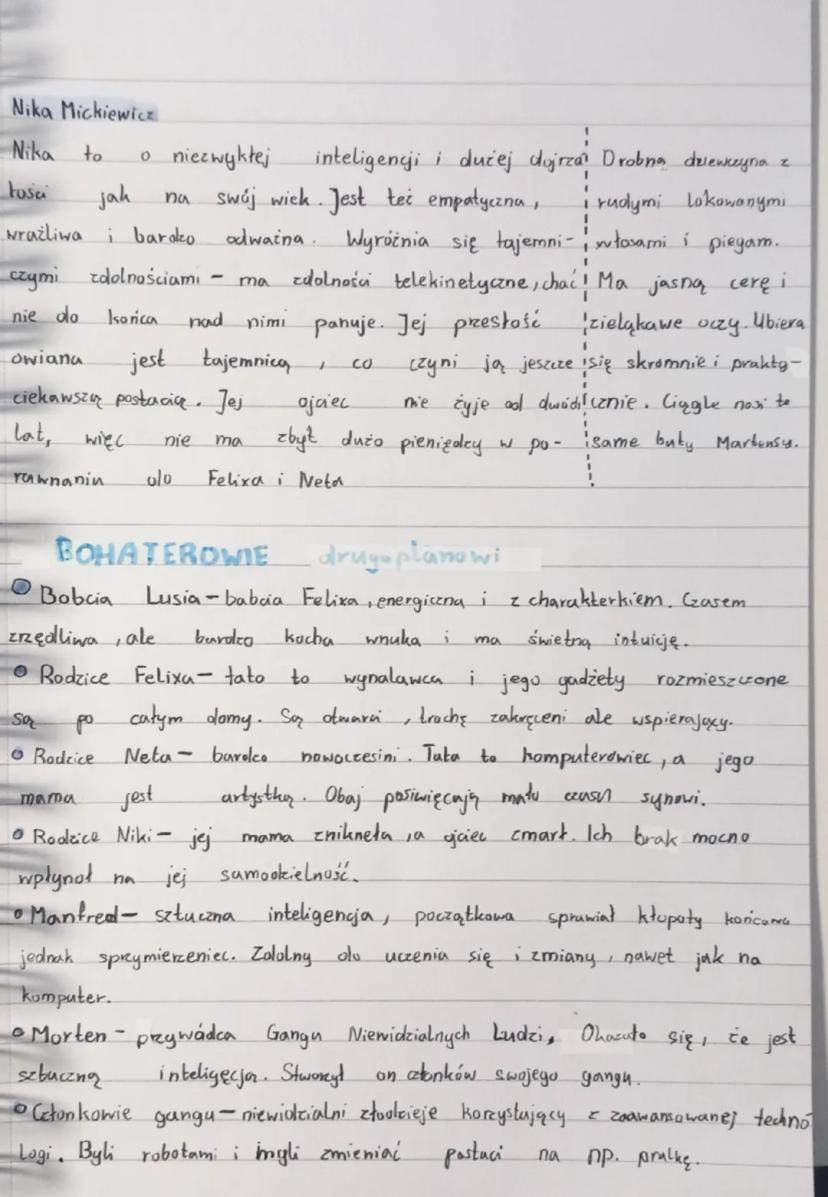 Nika Mickiewicz
Nika to o niezwykłej inteligencji i dużej dojrza
łości jak na swój wiek. Jest też empatyczna,
wrażliwa i bardzo odważna. Wyróżnia się tajemni-
czymi zdolnościami - ma zdolności telekinetyczne, choć
nie do końca nad nimi panuje. Jej przeszłość
owiana jest tajemnicą, co czyni ją jeszcze
ciekawszą postacią. Jej ojciec nie żyje od dwóch
lat, więc nie ma zbyt dużo pieniędzy w po-
równaniu do Felixa i Neta
Drobna dziewczyna z
rudymi lokowanymi
włosami i piegam.
Ma jasną cerę i
zieląkawe oczy. Ubiera
się skromnie i prakty-
cznie. Ciągle nosi te
same buty Martensy.
BOHATEROWIE drugoplanowi
Bobcia Lusia - babcia Felixa, energiczna i z charakterkiem. Czasem
zrzędliwa, ale bardzo kocha wnuka i ma świetną intuicję.
Rodzice Felixa - tato to wynalawca i jego gadżety rozmieszczone
są po całym domy. Są otwarci, trochę zakręceni ale wspierający.
Rodzice Neta - bardzo nowocześni. Tata to komputerowiec, a jego
mama jest artystką. Obaj poświęcają mało czasu synowi.
Rodzice Niki - jej mama zniknęła, a ojciec zmarł. Ich brak mocno
wpłynoł na jej samodzielność.
Manfred - sztuczna inteligencja, początkowa sprawiał kłopoty końcowo
jednak sprzymierzeniec. Zdolny do uczenia się i zmiany, nawet jak na
komputer.
Morten - przywódca Gangu Niewidzialnych Ludzi, Okazało się, że jest
sztuczną inteligęcja. Stworzył on członków swojego gangu.
Członkowie gangu - niewidzialni złodzieje korzystający z zaawansowanej techno
logi. Byli robotami i mgli zmieniać postaci na np. pralkę.